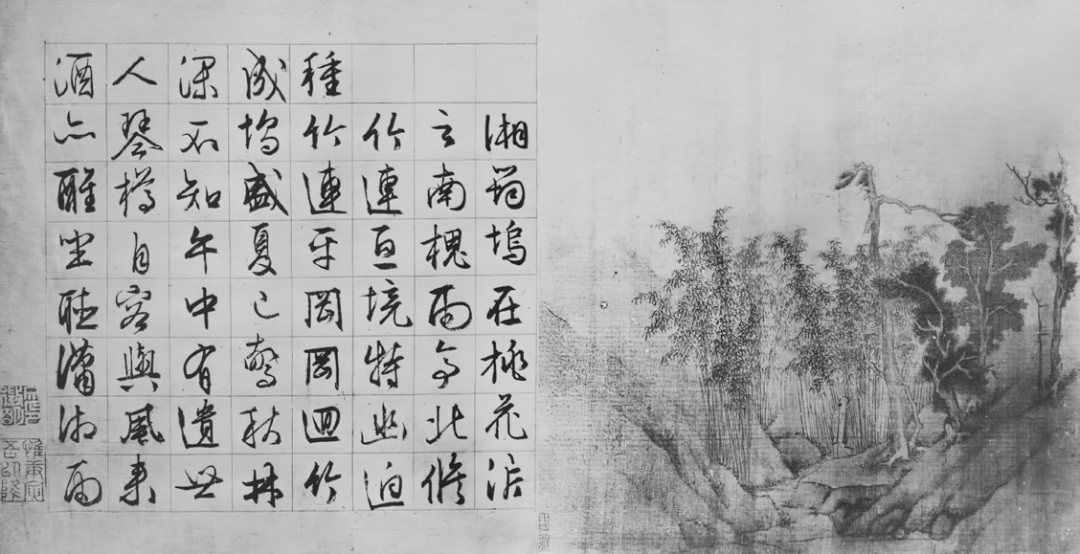 湘筠塢在桃花沜
之南槐雨亭北脩
竹連亘境特幽迥
種竹連平岡岡迴竹
成塢盛夏已驚秋林
深不知午中有遺世
人琴樽自容與風來
酒亦醒坐聽瀟湘雨
惟庚寅吾以降